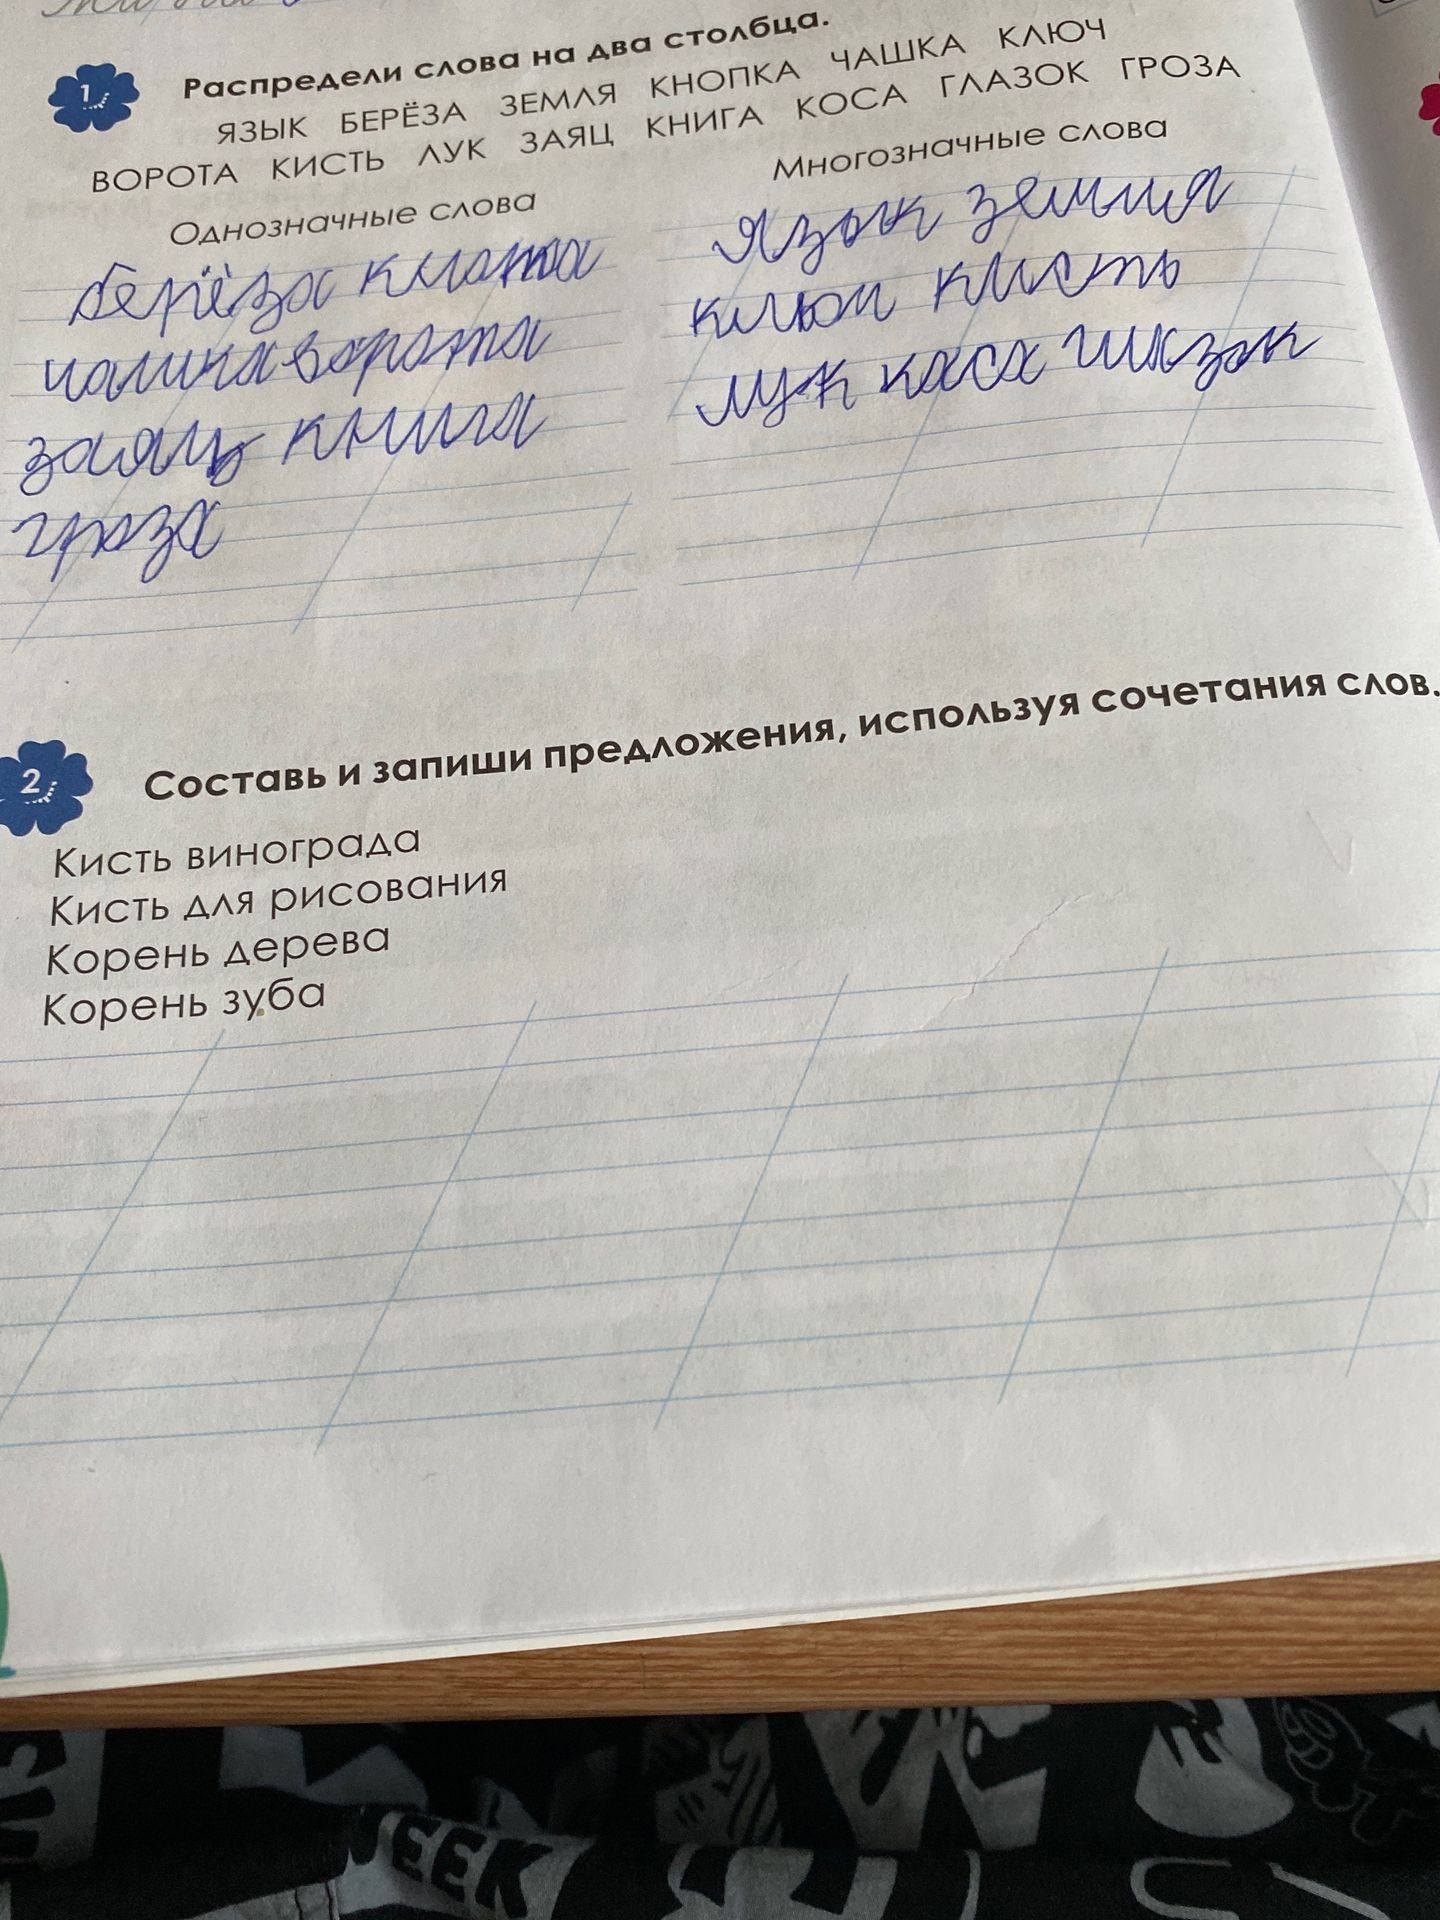 1
Распредели слова на два столбца.
ЯЗЫК БЕРЁЗА ЗЕМЛЯ КНОПКА ЧАШКА КЛЮЧ
ВОРОТА КИСТЬ ЛУК ЗАЯЦ КНИГА КОСА ГЛАЗОК ГРОЗА
Однозначные слова
берёза
чашка ворота
заяц книга
гроза
Многозначные слова
язык земля
ключ кисть
лук коса глазок
2
Составь и запиши предложения, используя сочетания слов.
Кисть винограда
Кисть для рисования
Корень дерева
Корень зуба
WEEK